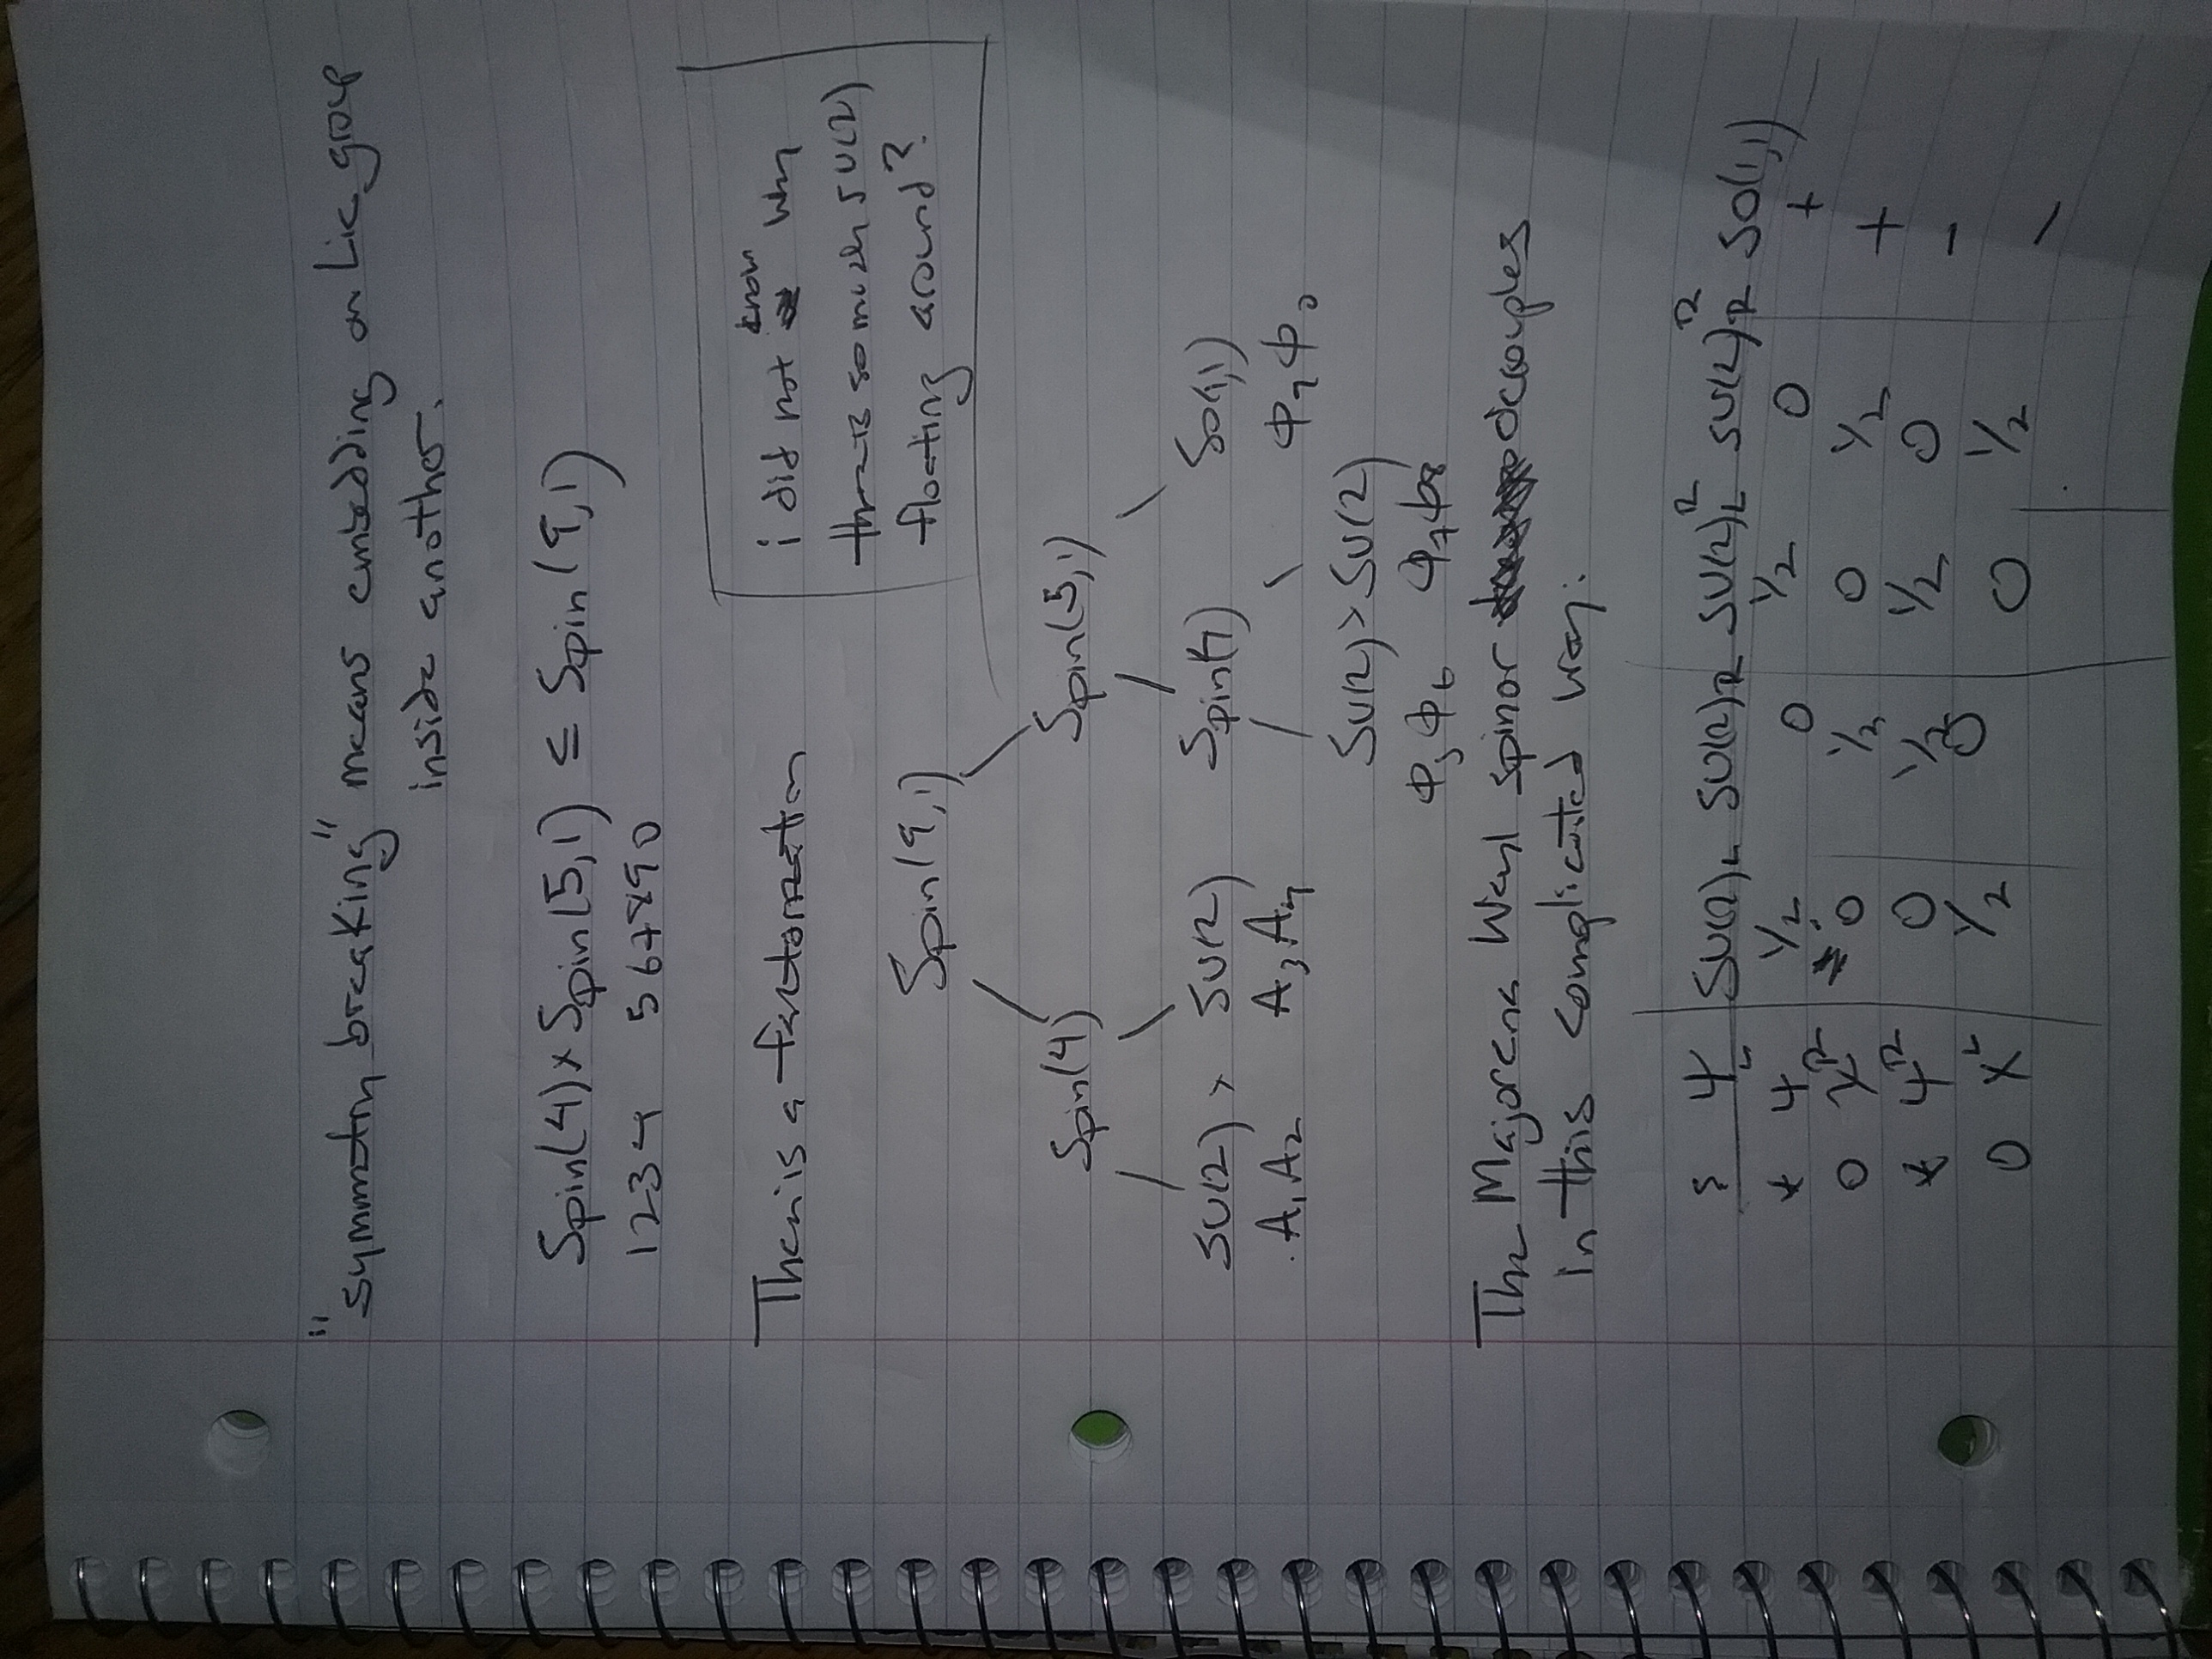 "symmetry breaking" means embedding on Lie group
inside another.
Spin(4) x Spin(5,1) ≤ Spin(9,1)
1234 567890
There is a factorization
i did not know why
there is so much SU(2)
floating around?
Spin(9,1)
Spin(4) Spin(5,1)
SU(2) × SU(2) Spin(4) SO(1,1)
A₁A₂ A₃A₄ Φ₉Φ₀
SU(2) × SU(2)
Φ₅Φ₆ Φ₇Φ₈
The Majorena Weyl spinor decouples
in this complicated way:
Ψ SU(2)L SU(2)R SU(2)L^R SU(2)R^R SO(1,1)
* Ψ^L 1/2 0 1/2 0 +
0 χ^R 0 1/2 0 1/2 +
* Ψ^R 0 1/2 1/2 0 −
0 χ^L 1/2 0 0 1/2 −